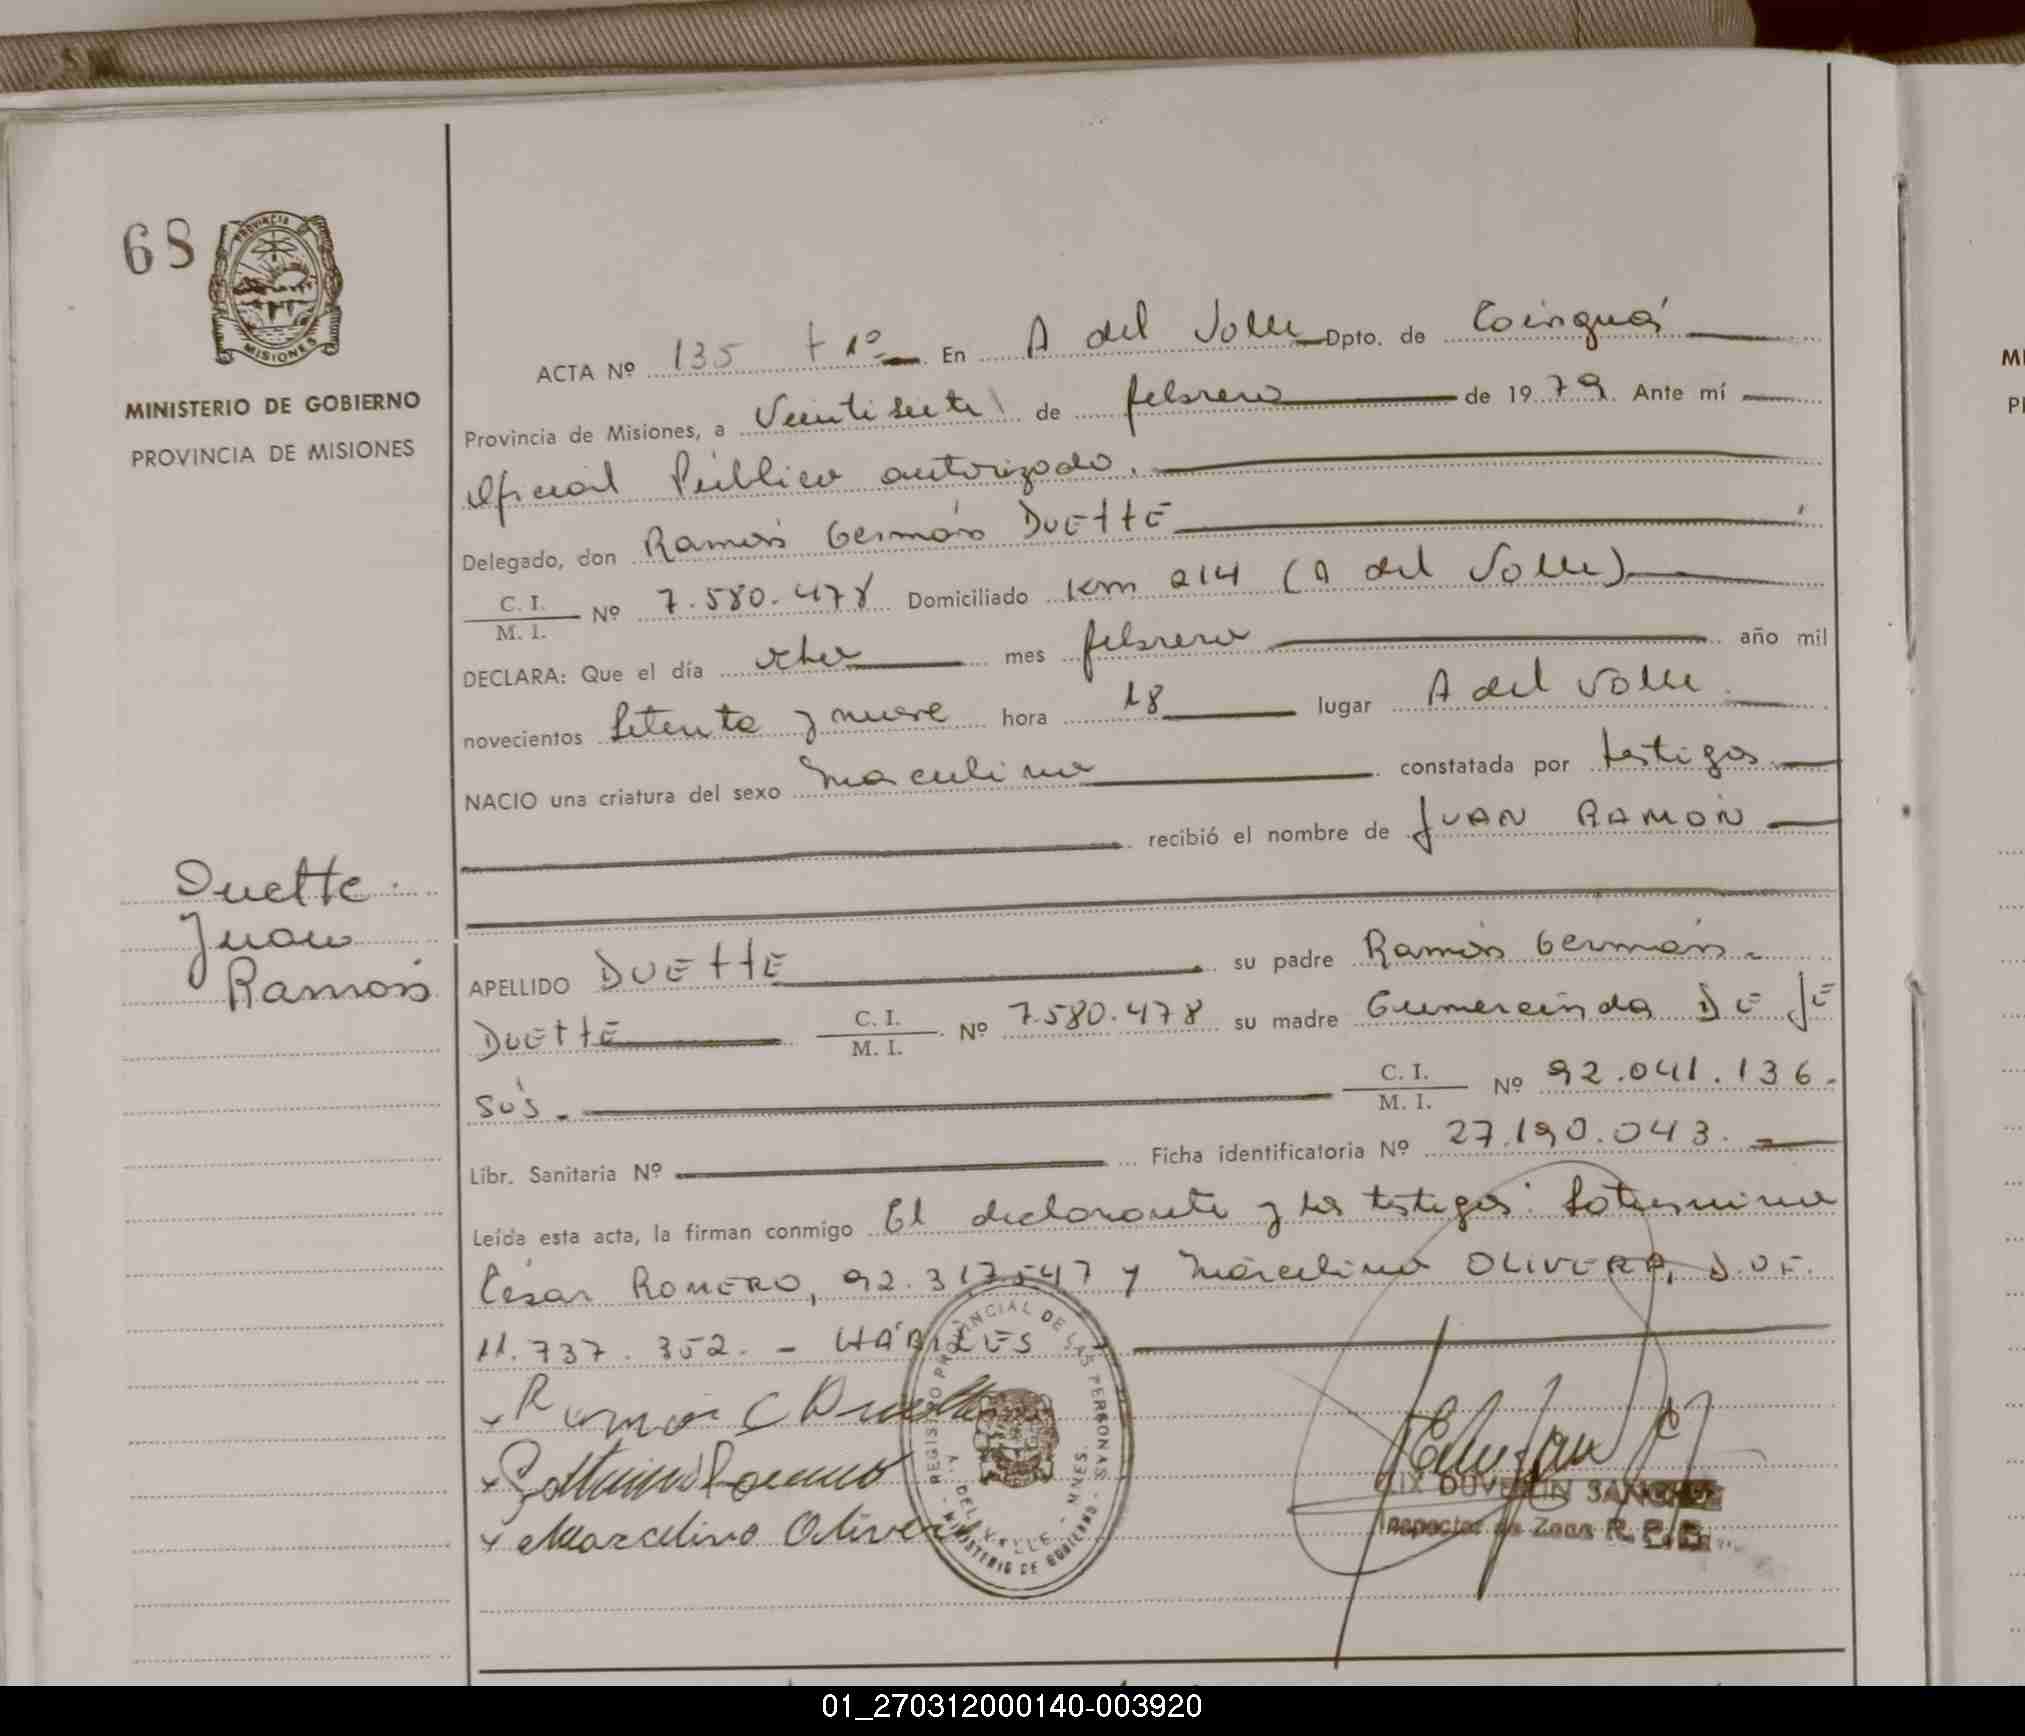 68
PROVINCIA
MISIONES
MINISTERIO DE GOBIERNO
PROVINCIA DE MISIONES
ACTA Nº 135 t 1º En A del Valle Dpto. de Cainguá
Provincia de Misiones, a Veintisiete de febrero de 1979. Ante mí
Oficial Público autorizado.
Delegado, don Ramón Germán DUETTE
C. I.
M. I. Nº 7.580.478 Domiciliado Km 214 (A del Valle)
DECLARA: Que el día ocho mes febrero año mil
novecientos setenta y nueve hora 18 lugar A del Valle
NACIO una criatura del sexo masculino constatada por testigos
recibió el nombre de JUAN RAMÓN
Duette
Juan
Ramón
APELLIDO DUETTE su padre Ramón Germán
DUETTE C. I. M. I. Nº 7.580.478 su madre Gumercinda DE JE
SÚS.- C. I. M. I. Nº 92.041.136.
Libr. Sanitaria Nº Ficha identificatoria Nº 27.190.043.
Leída esta acta, la firman conmigo El declarante y los testigos: Saturnino
César ROMERO, 92.317.547 y Marcelino OLIVERA, D.U.F.
11.737.352.- HÁBILES
Ramón G Duette
Saturnino Romero
Marcelino Olivera
REGISTRO PROVINCIAL DE LAS PERSONAS
A. DEL VALLE - MNES.
MINISTERIO DE GOBIERNO
DUVERLIN SANCHEZ
Inspector de Zona R. P.
MI
PR
01_270312000140-003920